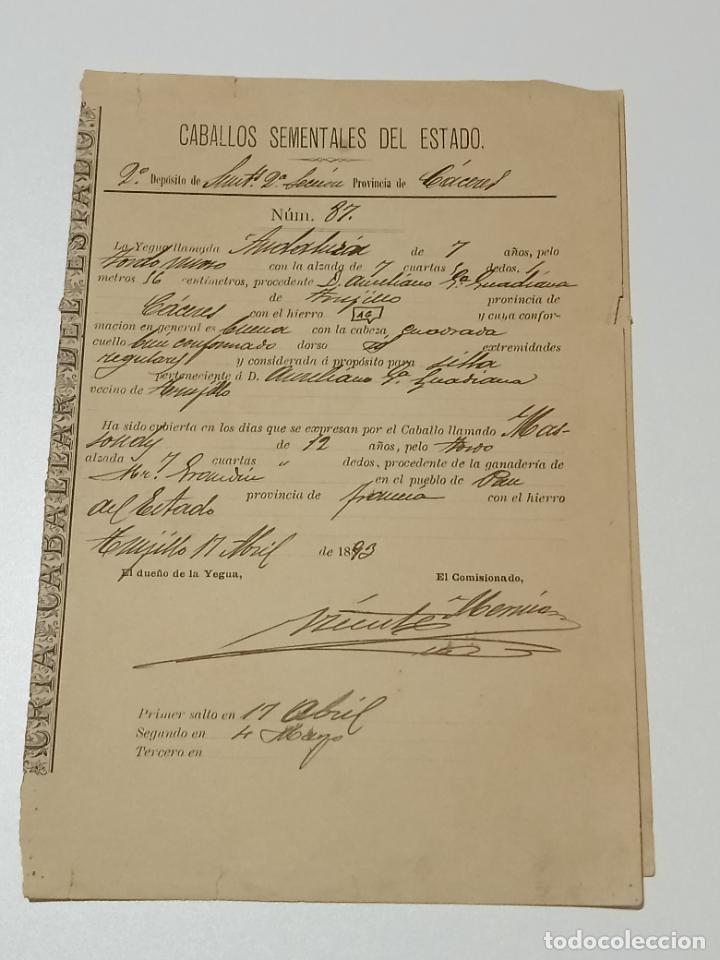 CRIA CABALLAR DEL ESTADO.
CABALLOS SEMENTALES DEL ESTADO.
2º Depósito de Sent.s 2ª Sección Provincia de Cáceres
Núm. 87.
La Yegua llamada de 7 años, pelo
tordo con la alzada de 7 cuartas dedos, 1
metros 56 centímetros, procedente D. Aureliano Gª Guadiana
de Trujillo provincia de
Cáceres con el hierro y cuya confor-
macion en general es buena con la cabeza cuadrada
cuello bien conformado dorso id extremidades
regulares y considerada á propósito para silla
perteneciente á D. Aureliano Gª Guadiana
vecino de Trujillo
Ha sido cubierta en los dias que se expresan por el Caballo llamado Mas-
de 12 años, pelo tordo
alzada 7 cuartas " dedos, procedente de la ganadería de
Mr. en el pueblo de Pau
provincia de francia con el hierro
del Estado
Trujillo 17 Abril de 1893
El dueño de la Yegua, El Comisionado,
Vicente
Primer salto en 17 Abril
Segundo en 4 Mayo
Tercero en
todocoleccion
todocoleccion.net